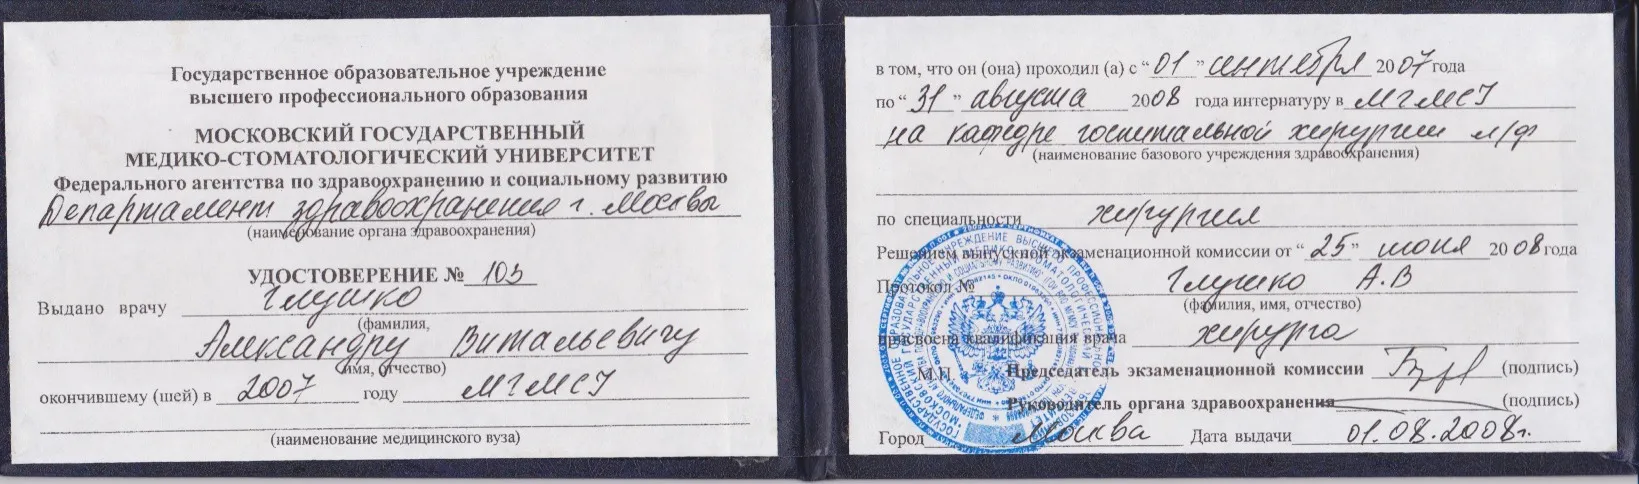 Государственное образовательное учреждение
высшего профессионального образования
МОСКОВСКИЙ ГОСУДАРСТВЕННЫЙ
МЕДИКО-СТОМАТОЛОГИЧЕСКИЙ УНИВЕРСИТЕТ
Федерального агентства по здравоохранению и социальному развитию
Департамент здравоохранения г. Москвы
(наименование органа здравоохранения)
УДОСТОВЕРЕНИЕ № 103
Выдано врачу Глушко
(фамилия,
Александру Витальевичу
имя, отчество)
окончившему (шей) в 2007 году МГМСУ
(наименование медицинского вуза)
в том, что он (она) проходил (а) с “01” сентября 2007 года
по “31” августа 2008 года интернатуру в МГМСУ
на кафедре госпитальной хирургии л/ф
(наименование базового учреждения здравоохранения)
по специальности хирургия
Решением выпускной экзаменационной комиссии от “25” июня 2008 года
Протокол № Глушко А.В
(фамилия, имя, отчество)
присвоена квалификация врача хирурга
М.П. Председатель экзаменационной комиссии (подпись)
Руководитель органа здравоохранения (подпись)
Город Москва Дата выдачи 01.08.2008г.